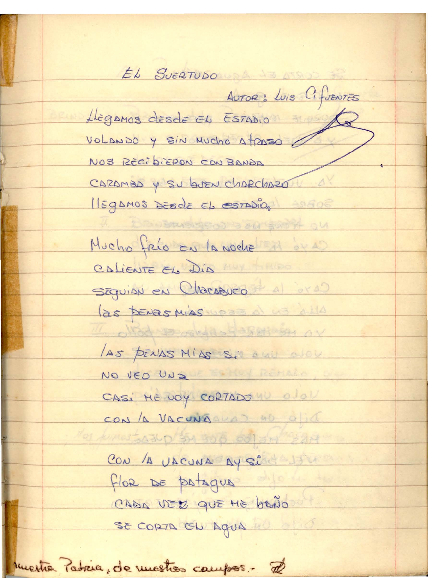 El Suertudo
Autor: Luis Cifuentes
Llegamos desde el Estadio
volando y sin mucho atraso
nos recibieron con banda
caramba y su buen charchazo
llegamos desde el estadio.
Mucho frío en la noche
caliente el Día
seguian en Chacabuco
las penas mias
las penas mias si
no veo una
casi me voy cortado
con la vacuna
con la vacuna ay si
flor de patagua
cada vez que me baño
se corta el agua
nuestra Patria, de nuestros campos.-